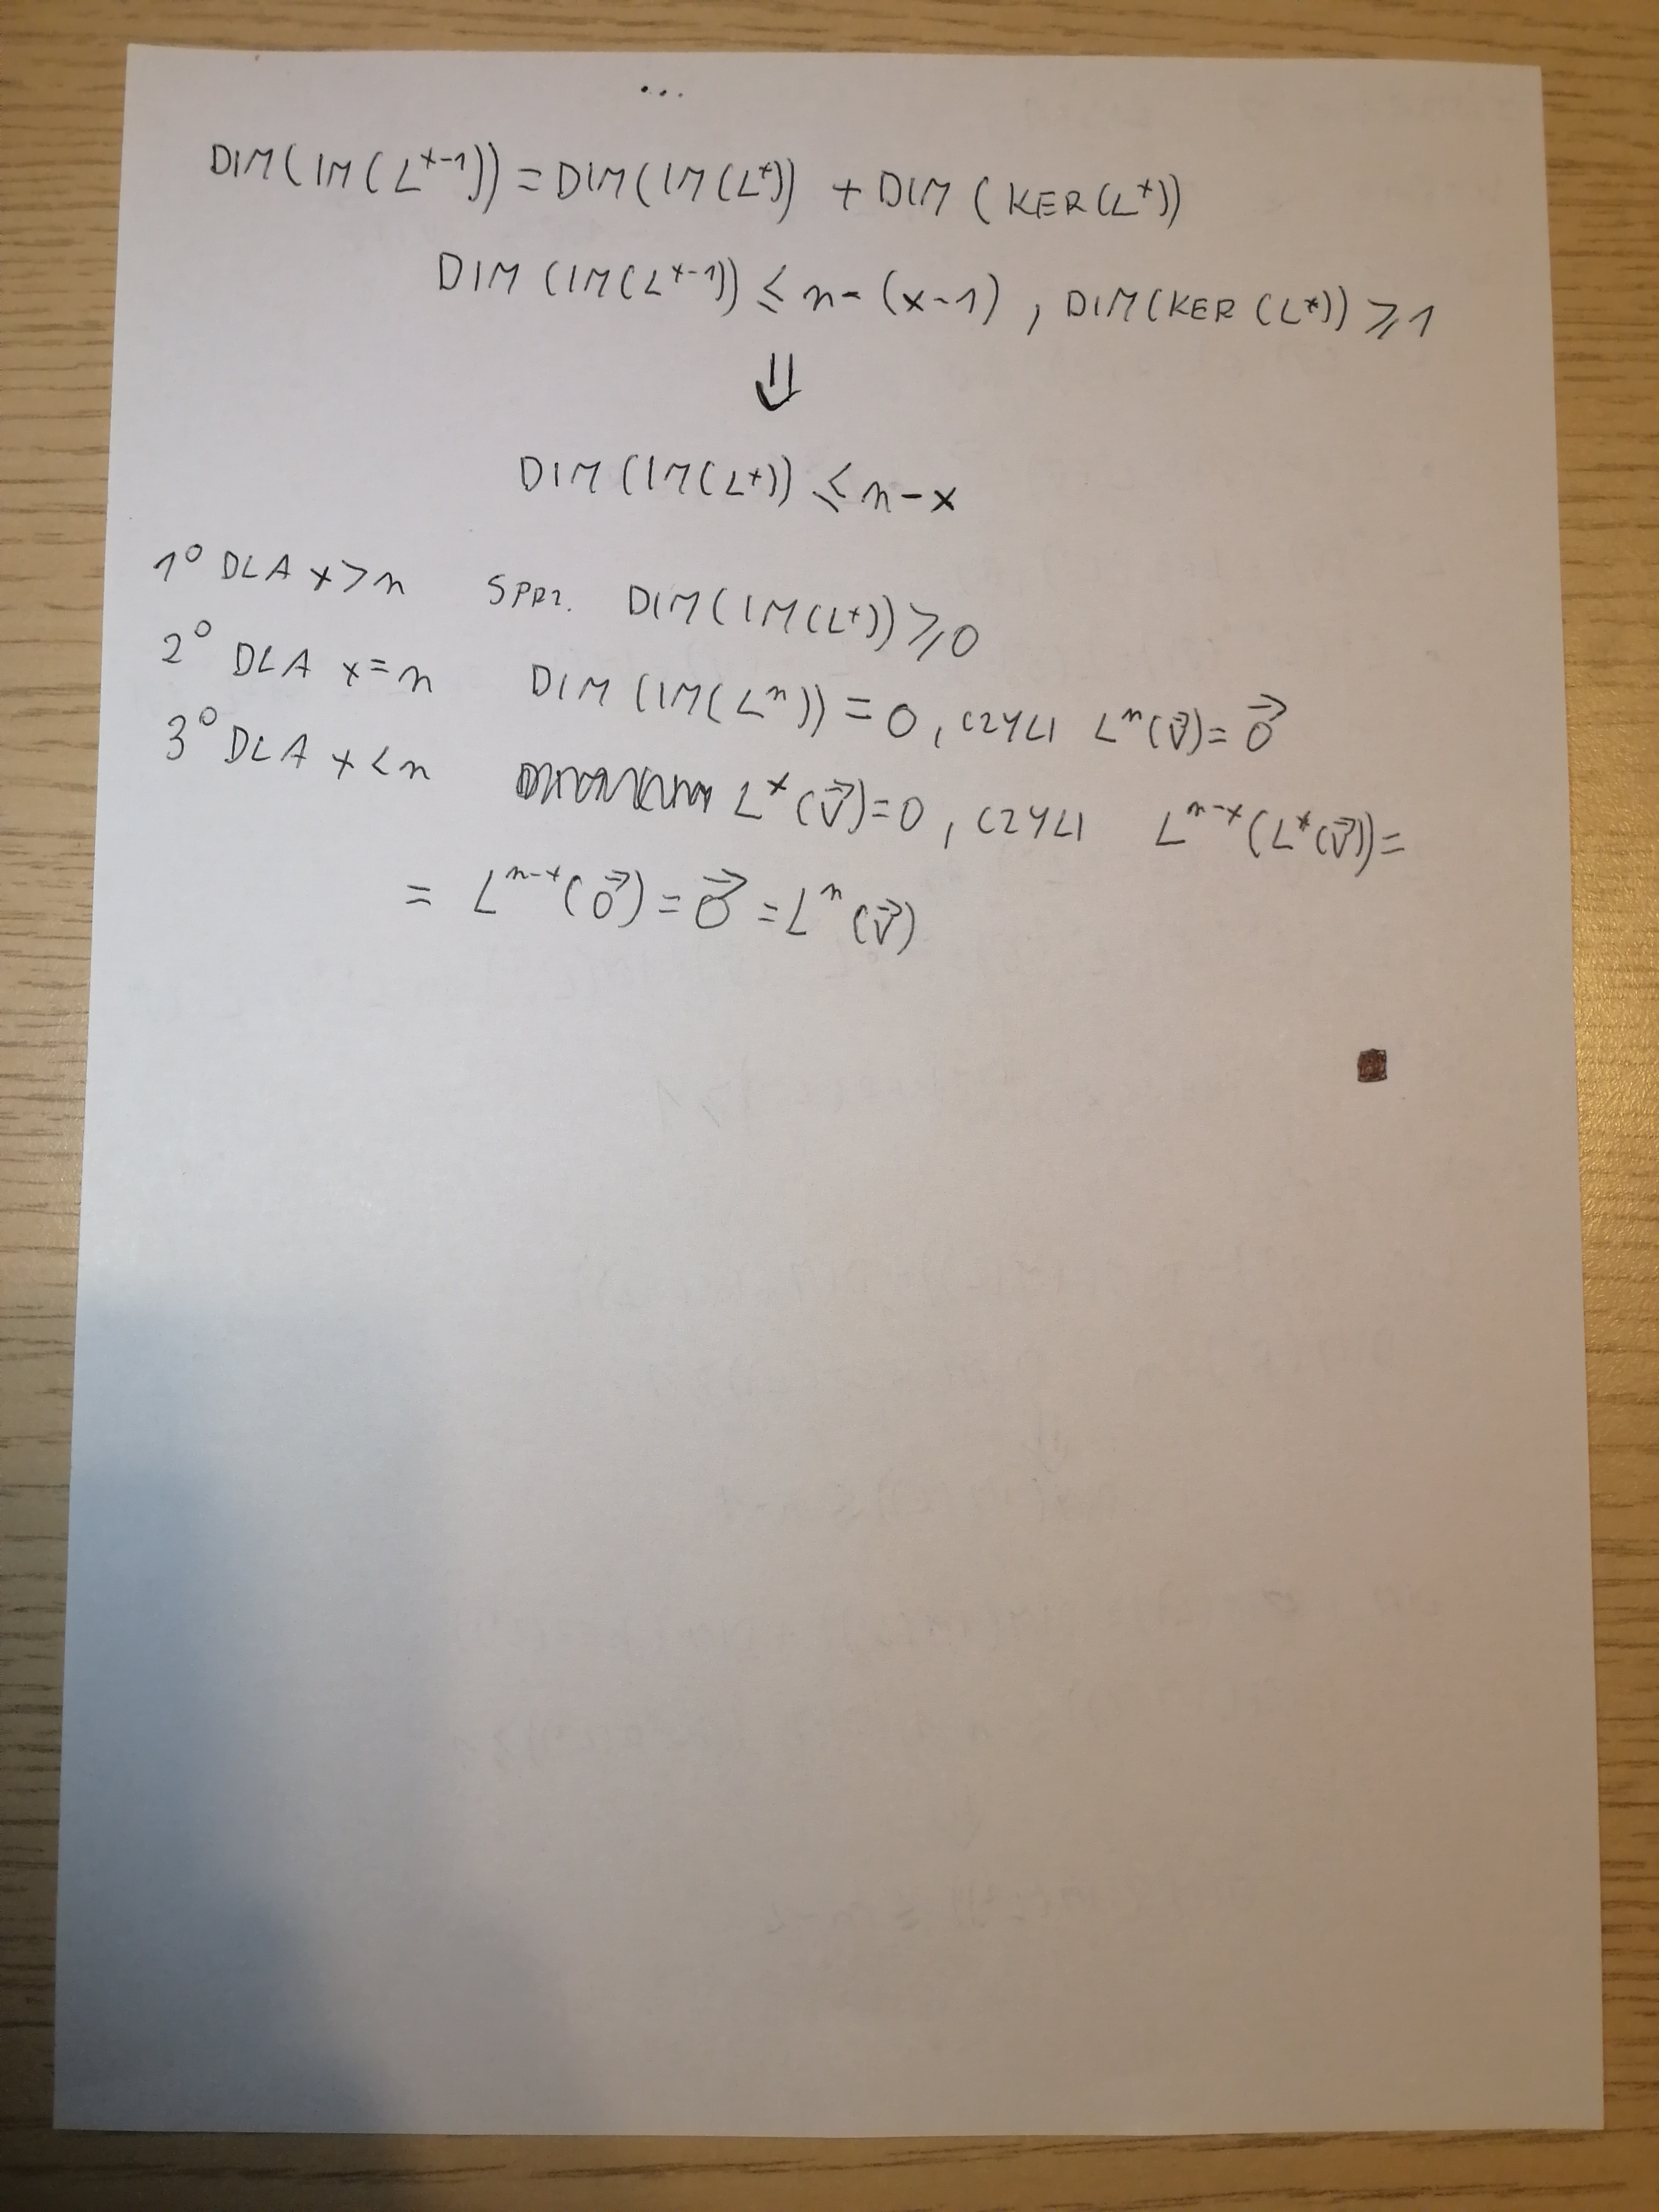 ...
DIM(IM(L^{x-1})) = DIM(IM(L^x)) + DIM(KER(L^x))
DIM(IM(L^{x-1})) ⩽ n-(x-1), DIM(KER(L^x)) ⩾ 1
⇓
DIM(IM(L^x)) ⩽ n-x
1° DLA x>n SPRZ. DIM(IM(L^x)) ⩾ 0
2° DLA x=n DIM(IM(L^n)) = 0, CZYLI L^n(v⃗) = 0⃗
3° DLA x<n L^x(v⃗)=0, CZYLI L^{n-x}(L^x(v⃗)) =
= L^{n-x}(0⃗) = 0⃗ = L^n(v⃗)
■